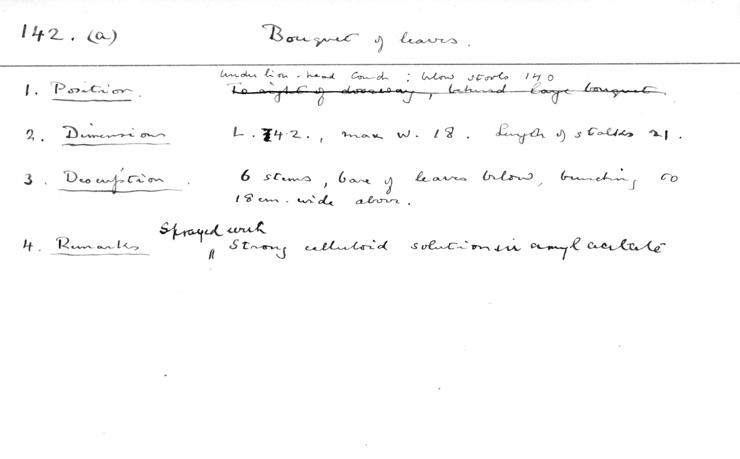 142. (a) Bouquet of leaves.
under lion-head couch : below stools 140
1. Position. To right of doorway, behind large bouquet.
2. Dimensions L. 42., max w. 18. Length of stalks 21.
3. Description. 6 stems, bare of leaves below, bunching to
18 cm. wide above.
Sprayed with
4. Remarks Strong celluloid solution in amyl acetate